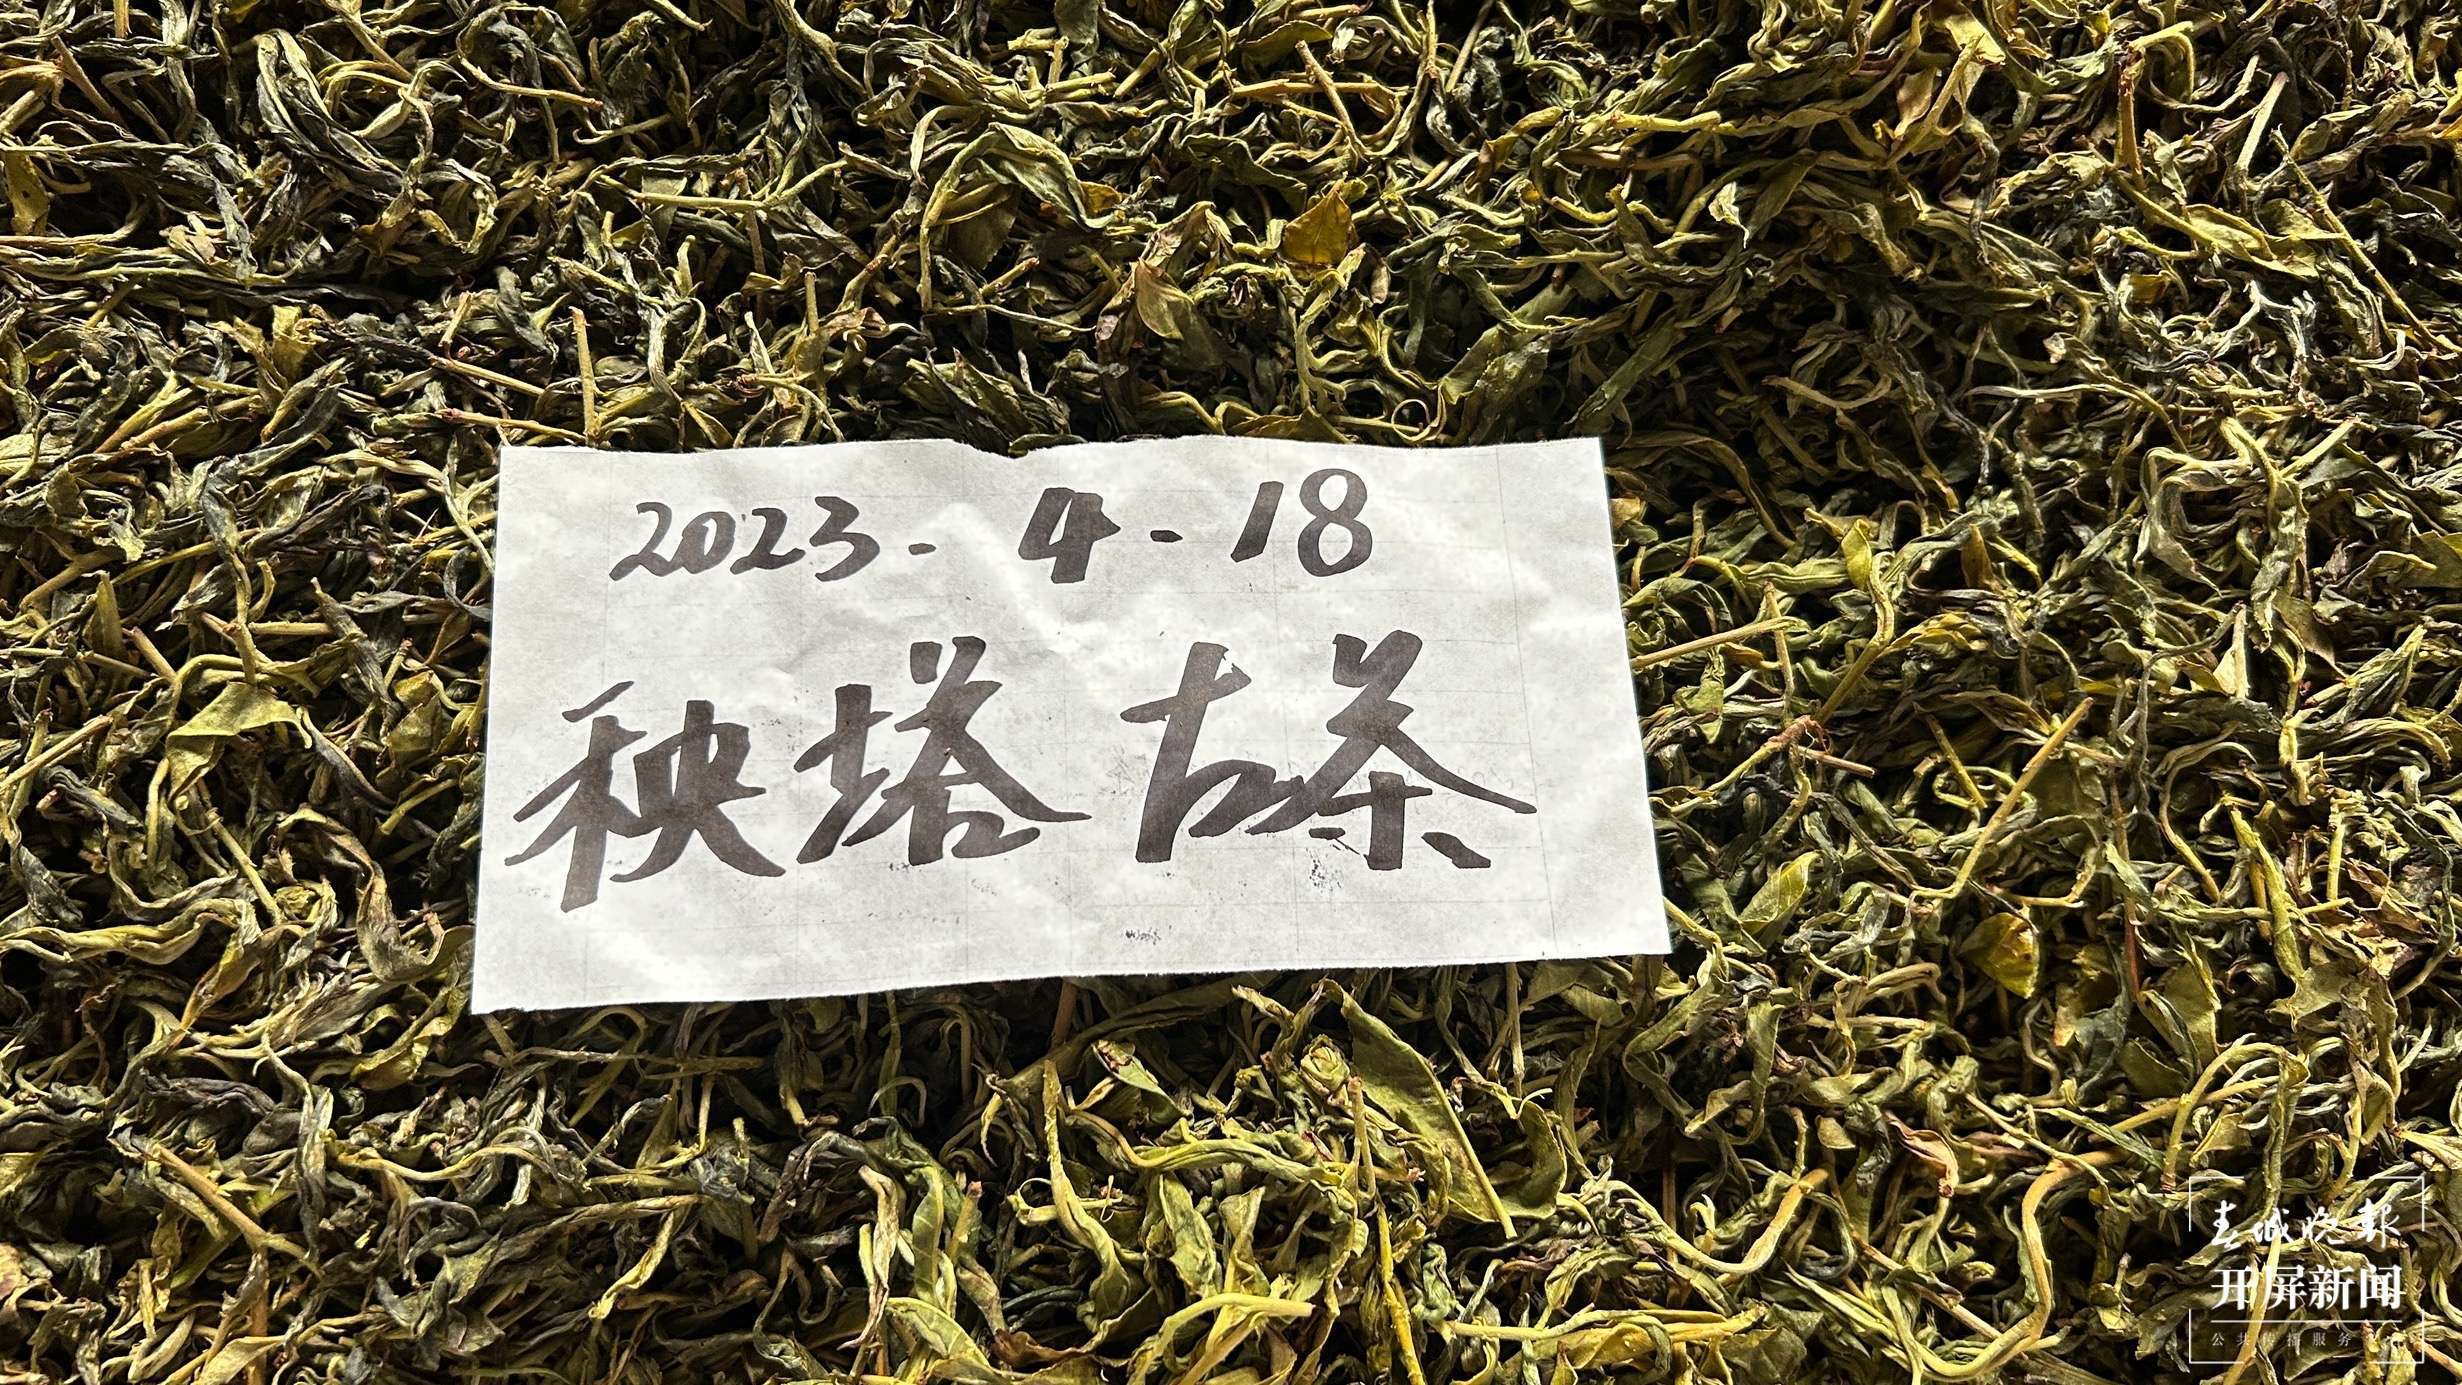 2023-4-18
秧塔古茶
春城晚報
开屏新闻
公共传播服务